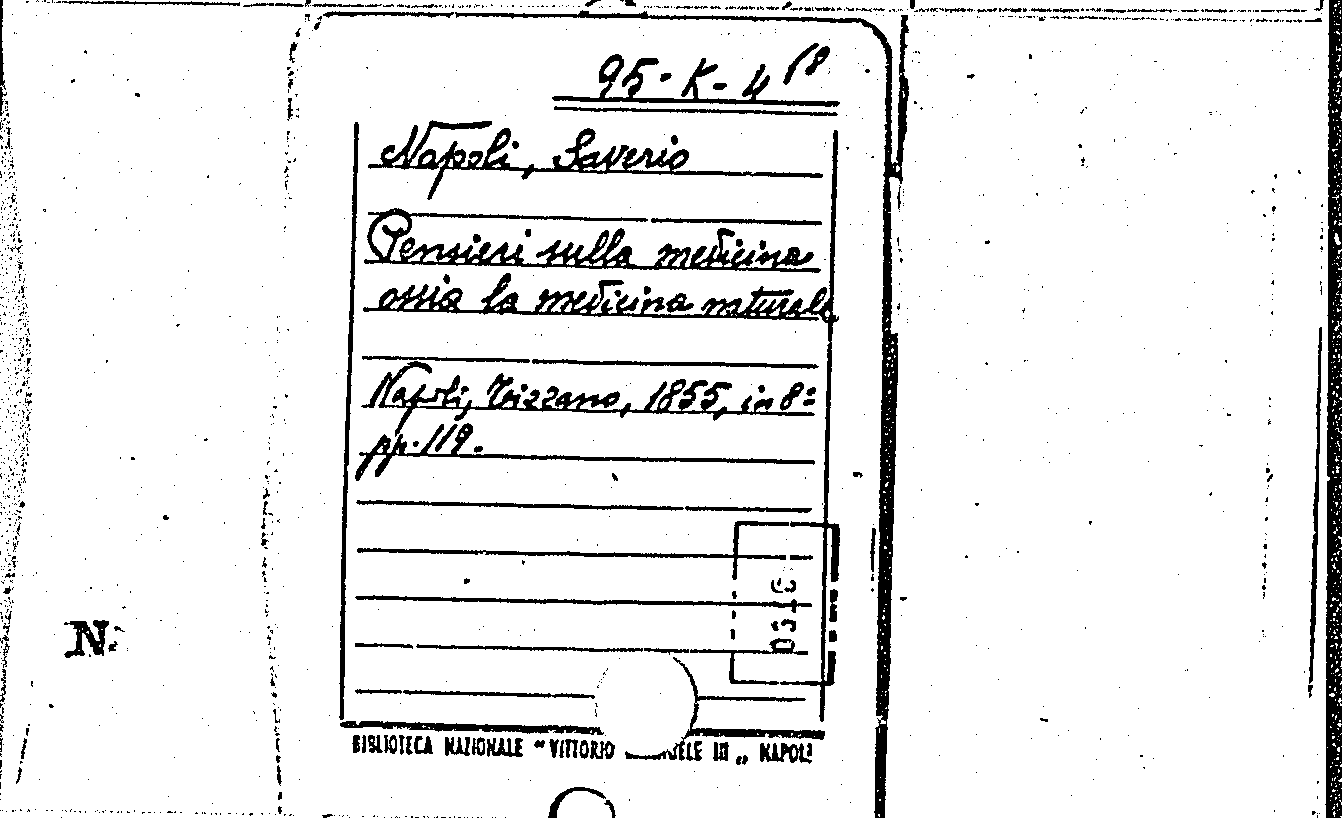 95-K-4 18
Napoli, Saverio
Pensieri sulla medicina
ossia la medicina naturale
Napoli, Trizzano, 1855, in 8º
pp. 119.
N.
BIBLIOTECA NAZIONALE "VITTORIO III „ NAPOLI